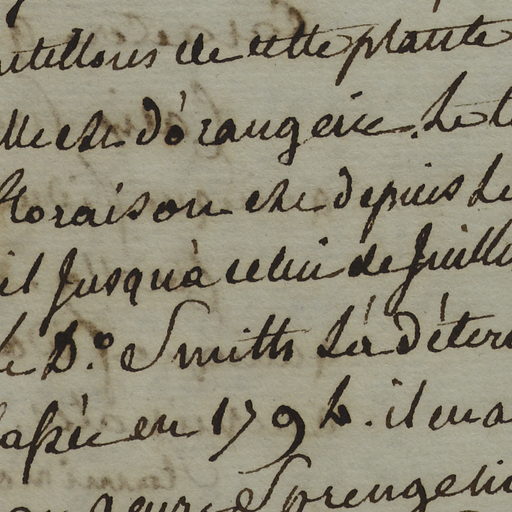 ntillons de cette plante
lle est d'orangerie. Le t
floraison est depuis Le
il Jusqu'à celui de Juill
le D.º Smith L'a déter
lassée en 1794. il en a
genre Sprengeli